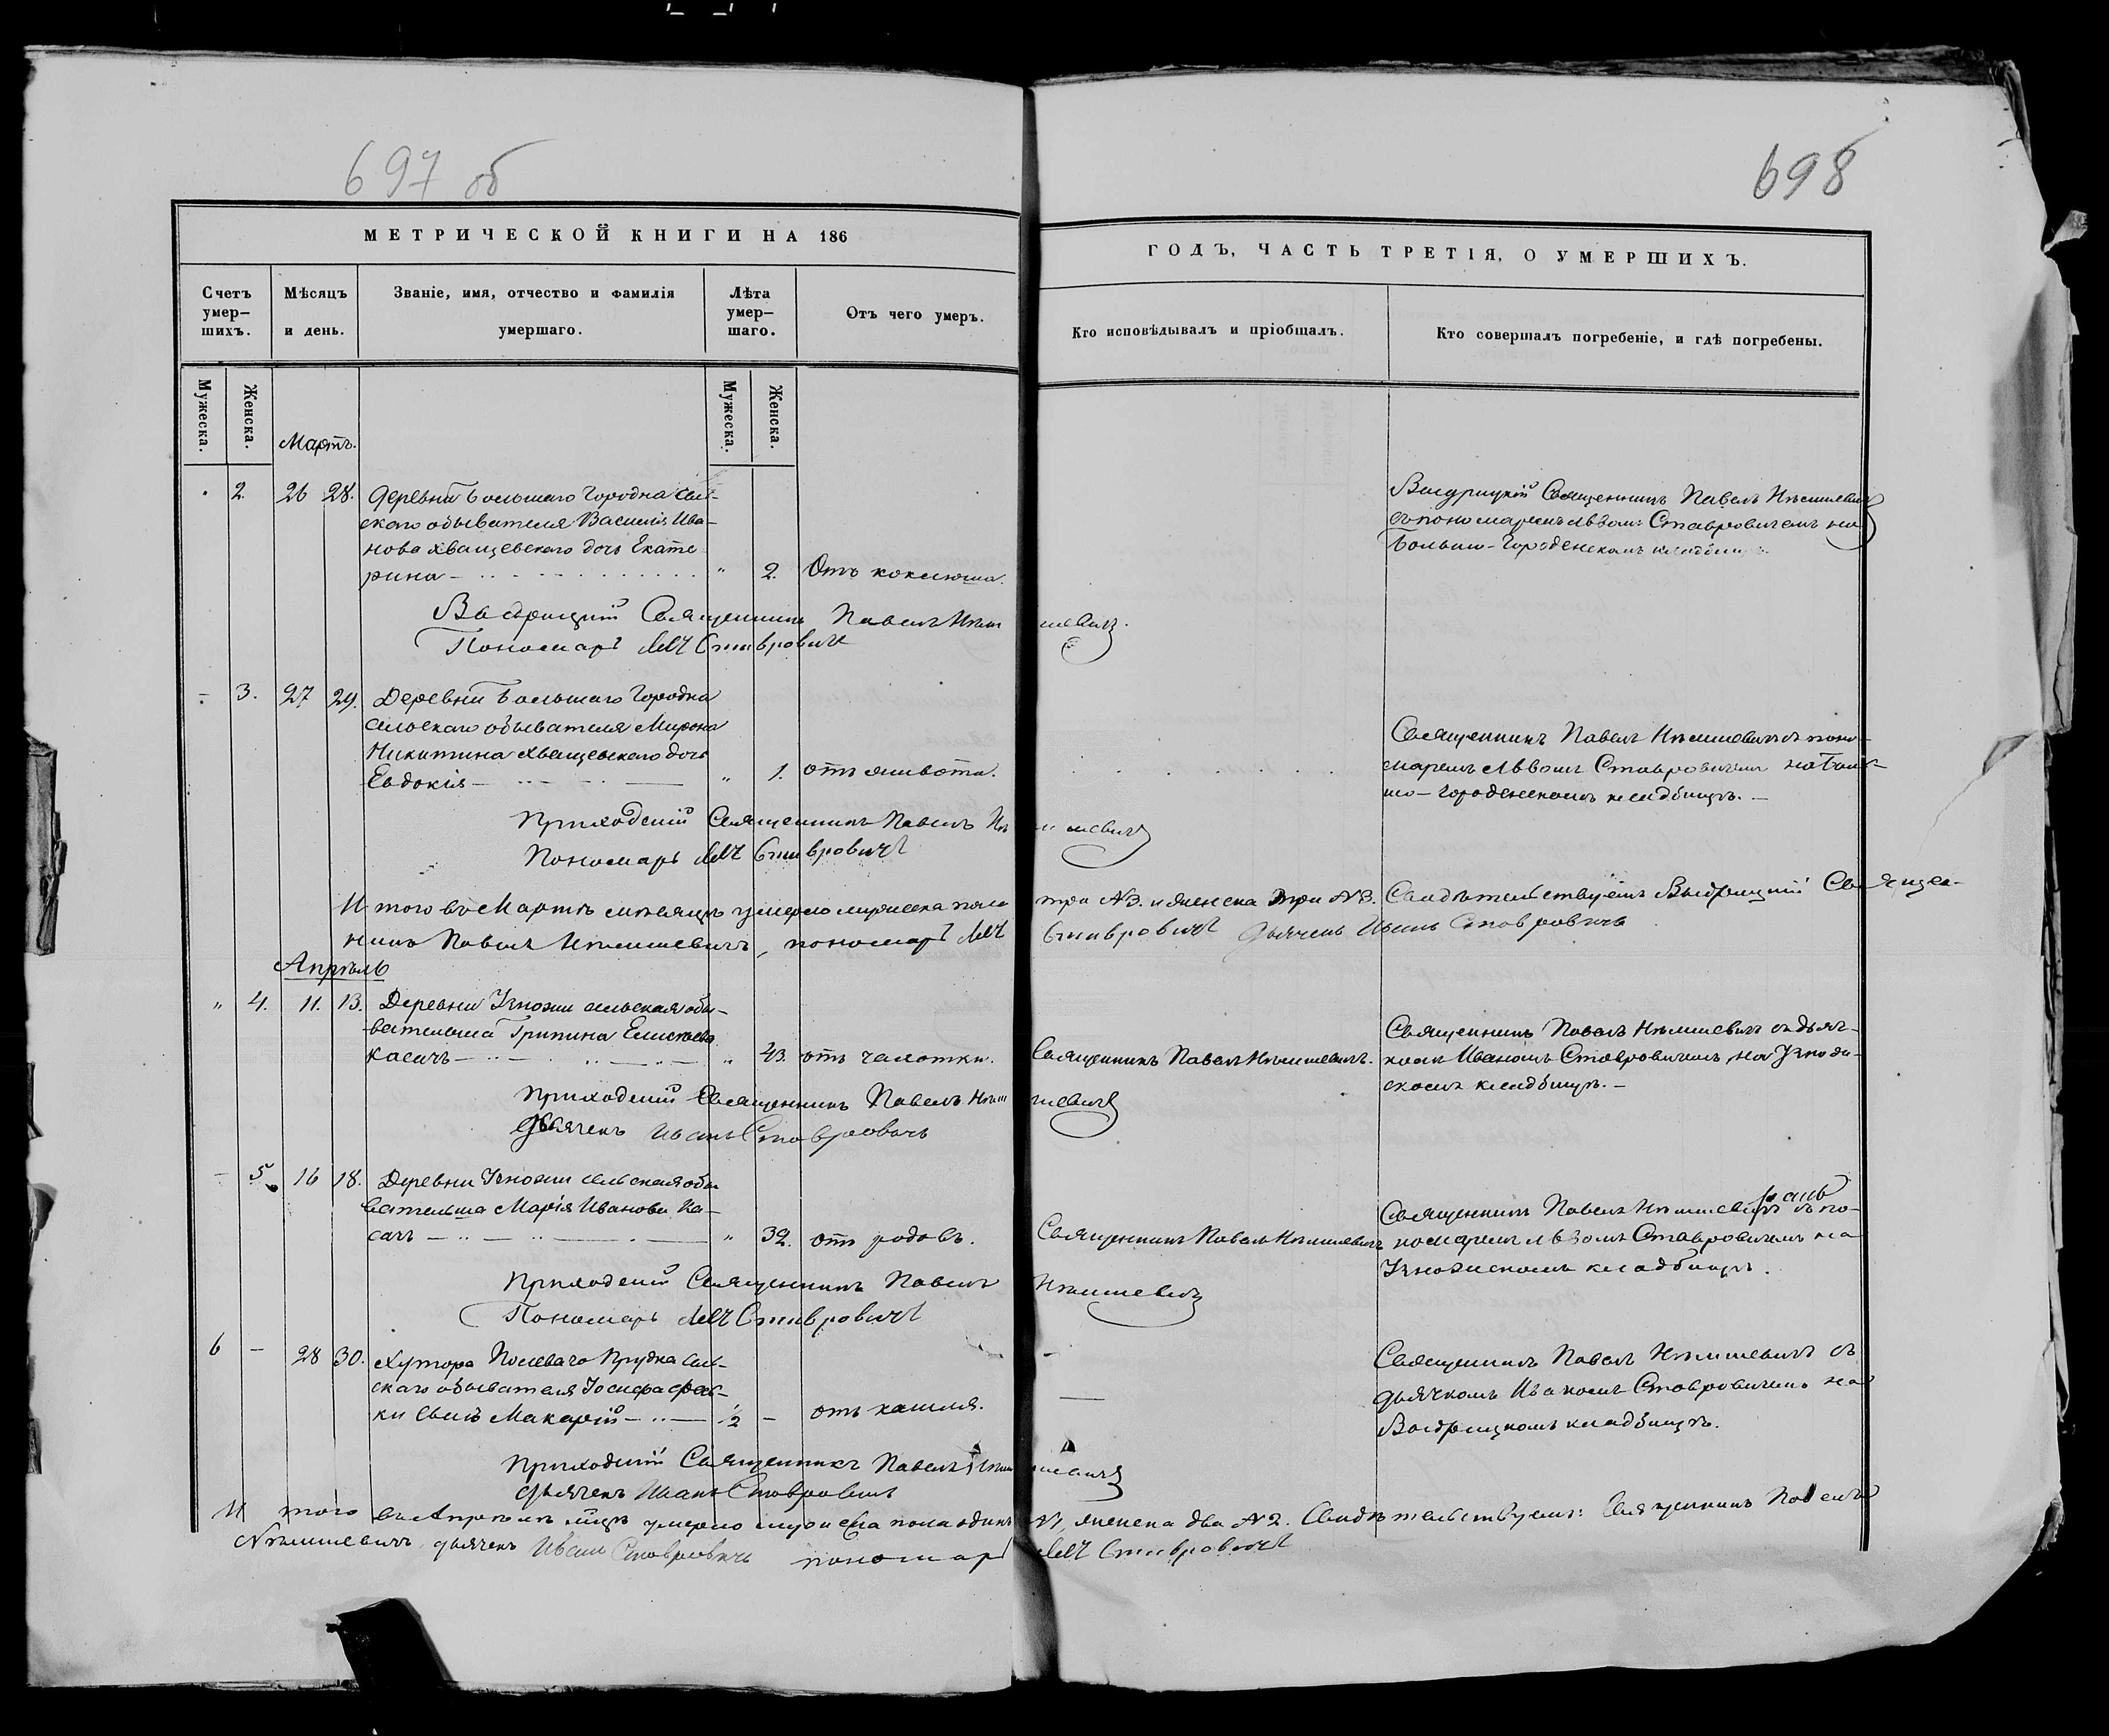 697 об
698
МЕТРИЧЕСКОЙ КНИГИ НА 186
ГОДЪ, ЧАСТЬ ТРЕТІЯ, О УМЕРШИХЪ.
Счетъ умер-шихъ.
Мѣсяцъ и день.
Званіе, имя, отчество и фамилія умершаго.
Лѣта умер-шаго.
Отъ чего умеръ.
Кто исповѣдывалъ и пріобщалъ.
Кто совершалъ погребеніе, и гдѣ погребены.
Мужеска.
Женска.
Мужеска.
Женска.
Мартъ.
2. 26 28. Деревни Большаго Городна сель-
скаго обывателя Василія Ива-
нова Хващевскаго дочь Екате
рина - " 2. Отъ коклюша.
Выдрицкій Священникъ Павелъ
съ пономаремъ Львомъ Ставровичемъ на
Больше-Городенскомъ кладбищѣ
Выдрицкій Священникъ Павелъ
Пономарь Левъ Ставровичъ
- 3. 27 29. Деревни Большаго Городна
сельскаго обывателя Мирона
Никитина Хващевскаго дочь
Евдокія - " 1. отъ живота.
Священникъ Павелъ съ поно-
маремъ Львомъ Ставровичемъ на Боль-
ше-Городенскомъ кладбищѣ. -
Приходскій Священникъ Павелъ
Пономарь Левъ Ставровичъ
И того въ Мартѣ мѣсяцѣ умерло мужеска пола три №3. и женска три №3. Свидѣтельствуемъ Выдрицкій Священ-
никъ Павелъ , пономарь Левъ Ставровичъ Дьячекъ Иванъ Ставровичъ
Апрѣль
" 4. 11. 13. Деревни сельская обы-
вательша Грипина
Касачъ - " 43. отъ чахотки. Священникъ Павелъ
Священникъ Павелъ съ дьяч-
комъ Иваномъ Ставровичемъ на
кладбищѣ. -
Приходскій Священникъ Павелъ
Дьячекъ Иванъ Ставровичъ
- 5 16 18. Деревни сельская обы
вательша Марія Иванова Ка-
сачъ - " 32. отъ родовъ. Священникъ Павелъ
Священникъ Павелъ съ по-
номаремъ Львомъ Ставровичемъ на
кладбищѣ.
Приходскій Священникъ Павелъ
Пономарь Левъ Ставровичъ
6 - 28 30. Хутора Полеваго Прудка сель-
скаго обывателя Іосифа
ки сынъ Макарій - 1/2 - отъ кашля.
Священникъ Павелъ съ
дьячкомъ Иваномъ Ставровичемъ на
Выдрицкомъ кладбищѣ.
Приходскій Священникъ Павелъ
Дьячекъ Иванъ Ставровичъ
И того въ Апрѣлѣ умерло мужеска пола одинъ №1, женска два №2. Свидѣтельствуемъ: Священникъ Павелъ
дьячекъ Иванъ Ставровичъ пономарь Левъ Ставровичъ